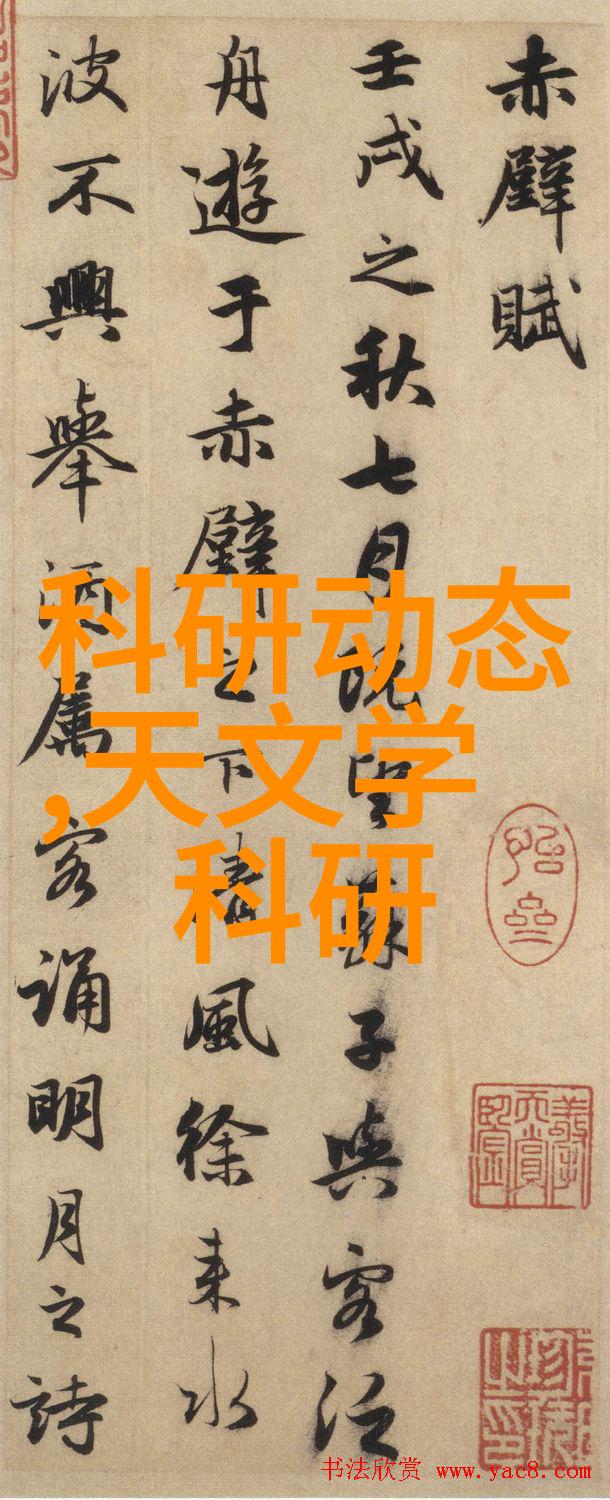 赤壁賦
壬戌之秋七月既望蘇子與客泛
舟遊于赤壁之下清風徐来水
波不興舉酒属客誦明月之詩
科研动态
,天文学
科研
书法欣赏 www.yac8.com